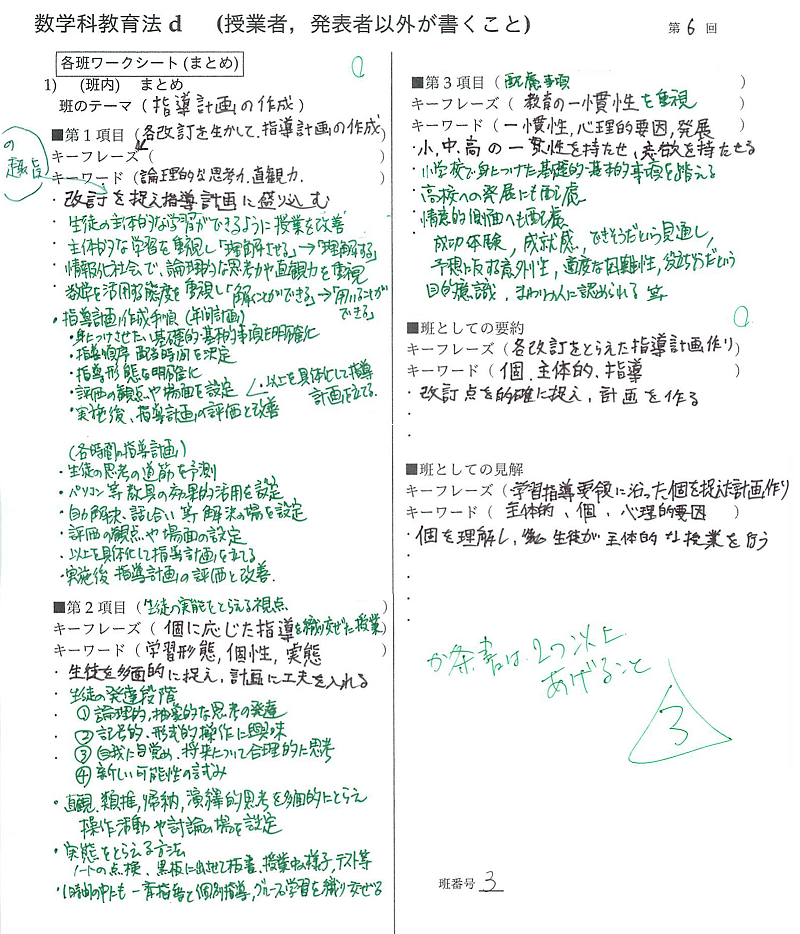 数学科教育法 d （授業者，発表者以外が書くこと）
第 6 回
各班ワークシート (まとめ)
1) （班内） まとめ
班のテーマ（指導計画の作成）
■第 1 項目（各改訂を生かして、指導計画の作成）
キーフレーズ（ ）
キーワード（論理的な思考力、直観力 ）
・改訂を捉え指導計画に盛り込む
・生徒の主体的な学習ができるように授業を改善
・主体的な学習を重視し「理解させる」→「理解する」
・情報化社会で、論理的な思考力や直観力を重視
・数学を活用する態度を重視し「解くことができる」→「用いることができる」
・指導計画作成手順（年間計画）
・身につけさせたい基礎的・基本的事項を明確化
・指導順序 配当時間を決定
・指導形態を明確に
・評価の観点や場面を設定
・以上を具体化して指導計画を立てる
・実施後、指導計画の評価と改善
（各時間の指導計画）
・生徒の思考の道筋を予測
・パソコン等教具の効果的活用を設定
・自力解決、話し合い等解決の場を設定
・評価の観点や場面の設定
・以上を具体化して指導計画を立てる
・実施後 指導計画の評価と改善.
■第 2 項目（生徒の実態をとらえる視点 ）
キーフレーズ（個に応じた指導を織り交ぜた授業）
キーワード（学習形態，個性，実態 ）
・生徒を多面的に捉え，計画に工夫を入れる
・生徒の発達段階
① 論理的，抽象的な思考の発達
② 記号的・形式的操作に興味
③ 自我に目覚め，将来について合理的に思考
④ 新しい可能性の試み
・直観，類推，帰納，演繹的思考を多面的にとらえ
操作活動や討論の場を設定
・実態をとらえる方法
ノートの点検、黒板に出させて板書、授業中の様子，テスト等
・1時間の中にも一斉指導と個別指導，グループ学習を織り交ぜる
■第 3 項目（配慮事項 ）
キーフレーズ（教育の一慣性を重視 ）
キーワード（一慣性，心理的要因，発展 ）
・小，中，高の一貫性を持たせ，意欲を持たせる
・小学校で身につけた基礎的・基本的事項を踏える
・高校への発展にも配慮
・情意的側面へも配慮
成功体験，成就感，できそうだという見通し，
予想に反する意外性，適度な困難性，役立ちそうだという
目的意識，まわりの人に認められる 等
■班としての要約
キーフレーズ（各改訂をとらえた指導計画作り）
キーワード（個、主体的、指導 ）
・改訂点を的確に捉え，計画を作る
・
・
■班としての見解
キーフレーズ（学習指導要領に沿った個を捉えた計画作り）
キーワード（主体的、個、心理的要因 ）
・個を理解し，生徒が主体的な授業を行う
・
・
・
・
か条書は、2つ以上
あげること
3
班番号 3